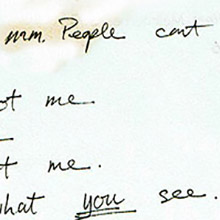 mm. People cant
ot me.
t me.
what you see.